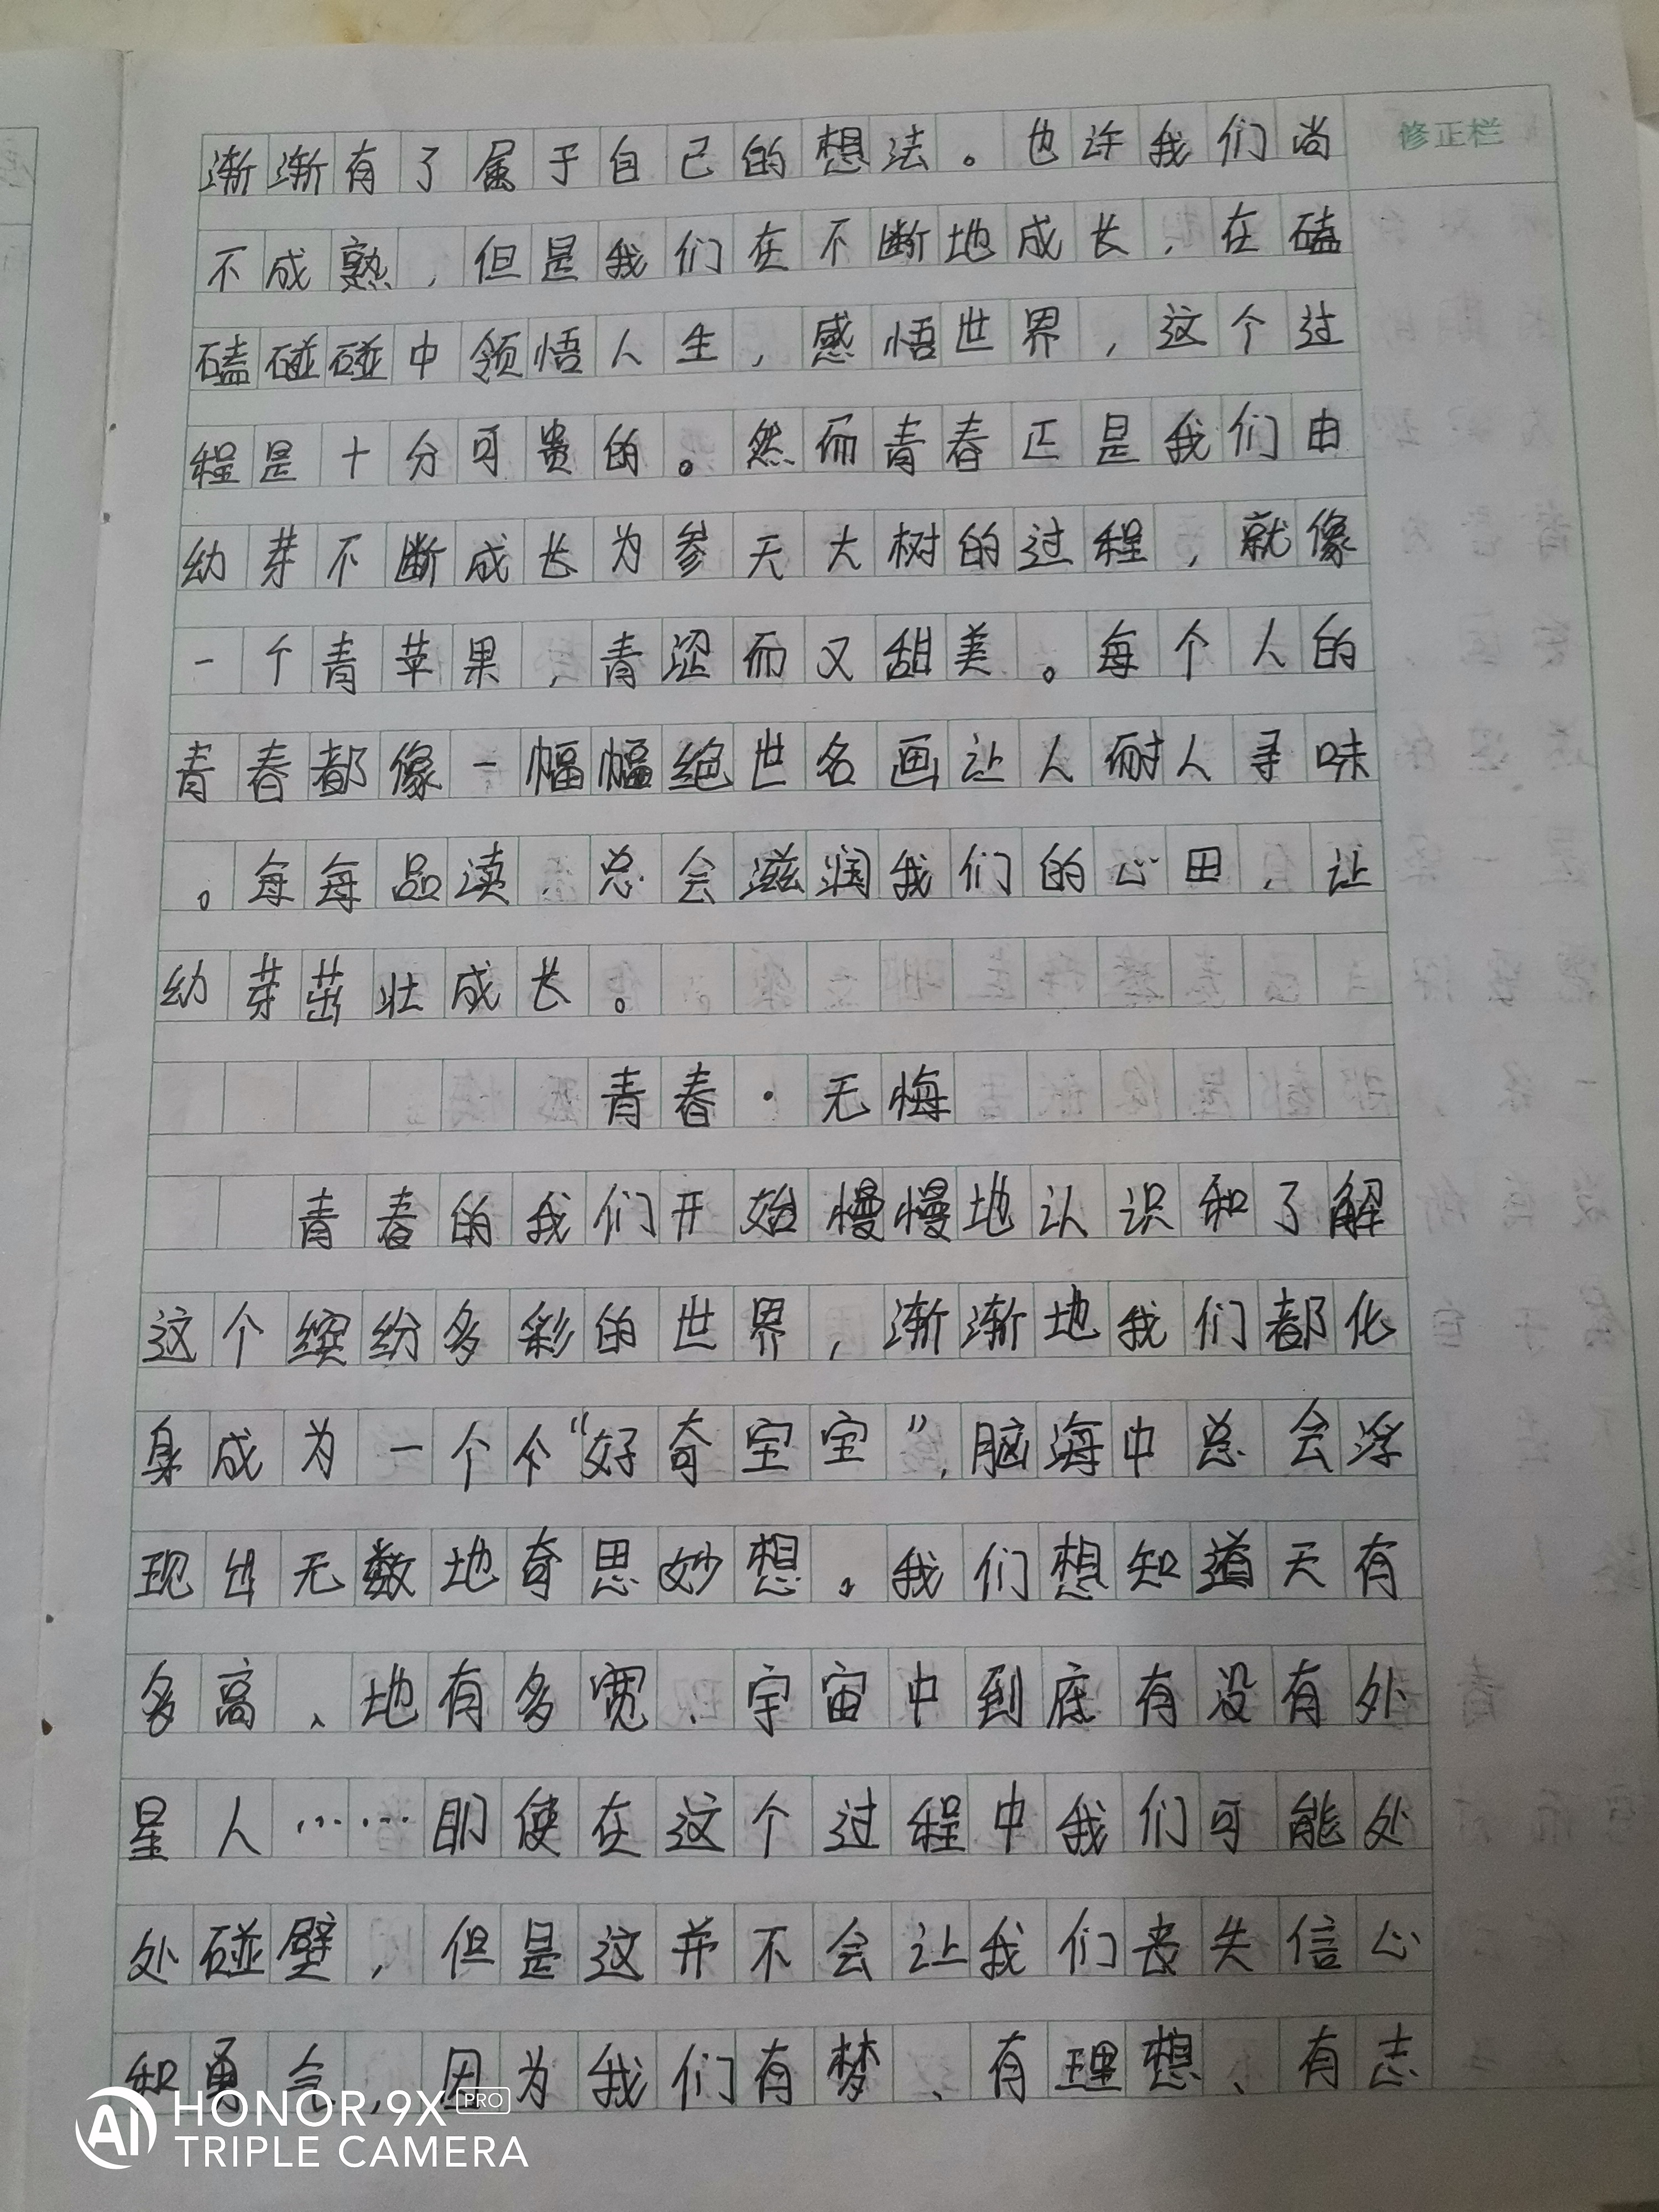 修正栏
渐渐有了属于自己的想法。也许我们尚
不成熟，但是我们在不断地成长，在磕
磕碰碰中领悟人生，感悟世界，这个过
程是十分可贵的。然而青春正是我们由
幼芽不断成长为参天大树的过程，就像
一个青苹果，青涩而又甜美。每个人的
青春都像一幅幅绝世名画让人耐人寻味
。每每品读，总会滋润我们的心田，让
幼芽茁壮成长。
青春·无悔
青春的我们开始慢慢地认识和了解
这个缤纷多彩的世界，渐渐地我们都化
身成为一个个“好奇宝宝”，脑海中总会浮
现出无数地奇思妙想。我们想知道天有
多高、地有多宽、宇宙中到底有没有处
星人……即使在这个过程中我们可能处
处碰壁，但是这并不会让我们丧失信心
和勇气，因为我们有梦、有理想、有志
HONOR 9X PRO
TRIPLE CAMERA
AI